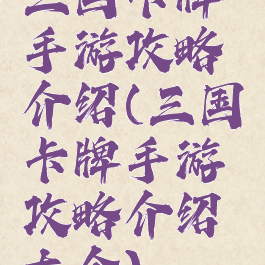 三国卡牌
手游攻略
介绍(三国
卡牌手游
攻略介绍
大全)